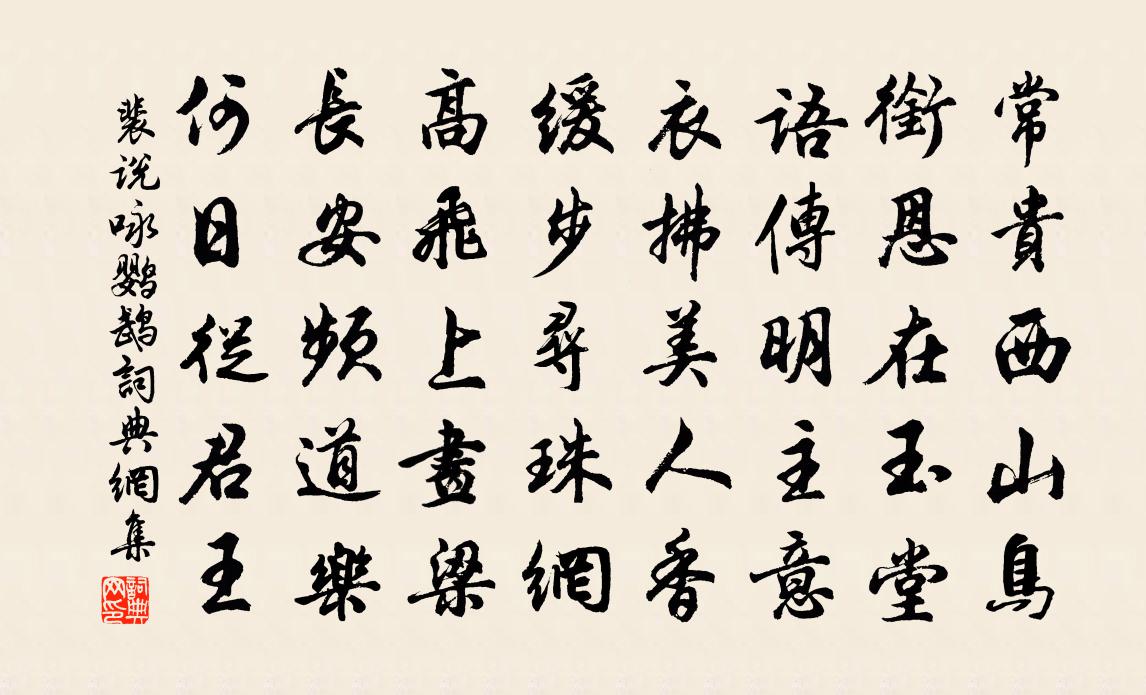 常貴西山鳥
銜恩在玉堂
語傳明主意
衣拂美人香
緩步尋珠網
高飛上畫梁
長安頻道樂
何日從君王
裴说咏鹦鹉詞典網集
詞典网印